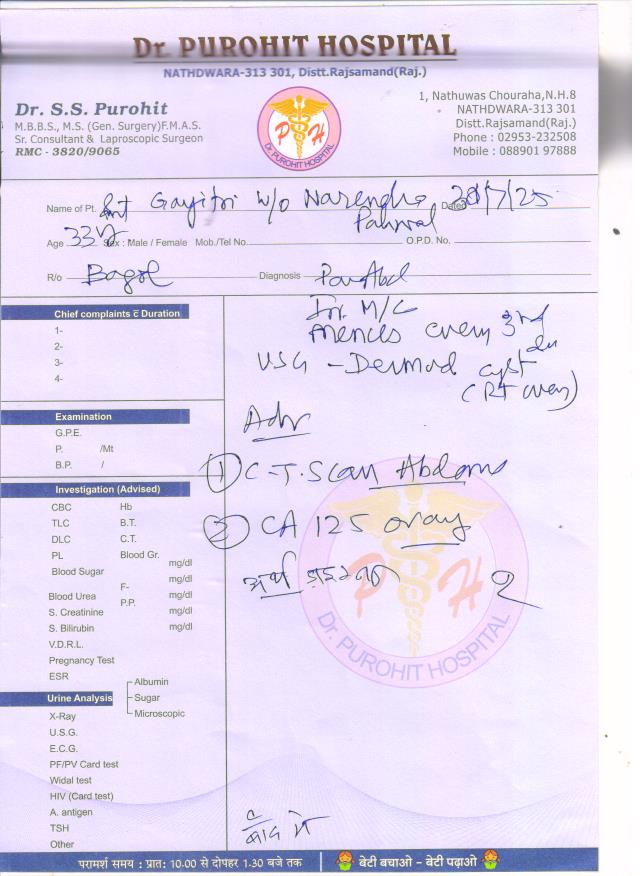 Dr. PUROHIT HOSPITAL
NATHDWARA-313 301, Distt.Rajsamand(Raj.)
Dr. S.S. Purohit
M.B.B.S., M.S. (Gen. Surgery)F.M.A.S.
Sr. Consultant & Laproscopic Surgeon
RMC - 3820/9065
P H
Dr. PUROHIT HOSPITAL
1, Nathuwas Chouraha,N.H.8
NATHDWARA-313 301
Distt.Rajsamand(Raj.)
Phone : 02953-232508
Mobile : 088901 97888
Name of Pt. Smt Gayitri w/o Narendra Dated 28/7/25
Age 33y Sex : Male / Female Mob./Tel No. O.P.D. No.
R/o Bagol Diagnosis Pain Abd
Irr. M/C
Mences every 3rd
USG - Dermoid cyst
(Rt ovary)
Adv
① C-T. Scan Abdomen
② CA 125 
Chief complaints c̄ Duration
1-
2-
3-
4-
Examination
G.P.E.
P. /Mt
B.P. /
Investigation (Advised)
CBC Hb
TLC B.T.
DLC C.T.
PL Blood Gr.
Blood Sugar mg/dl
F- mg/dl
Blood Urea P.P. mg/dl
S. Creatinine mg/dl
S. Bilirubin mg/dl
V.D.R.L.
Pregnancy Test
ESR
Urine Analysis
Albumin
Sugar
Microscopic
X-Ray
U.S.G.
E.C.G.
PF/PV Card test
Widal test
HIV (Card test)
A. antigen
TSH
Other
P H
Dr. PUROHIT HOSPITAL
बाद में
परामर्श समय : प्रात: 10.00 से दोपहर 1.30 बजे तक
बेटी बचाओ - बेटी पढ़ाओ